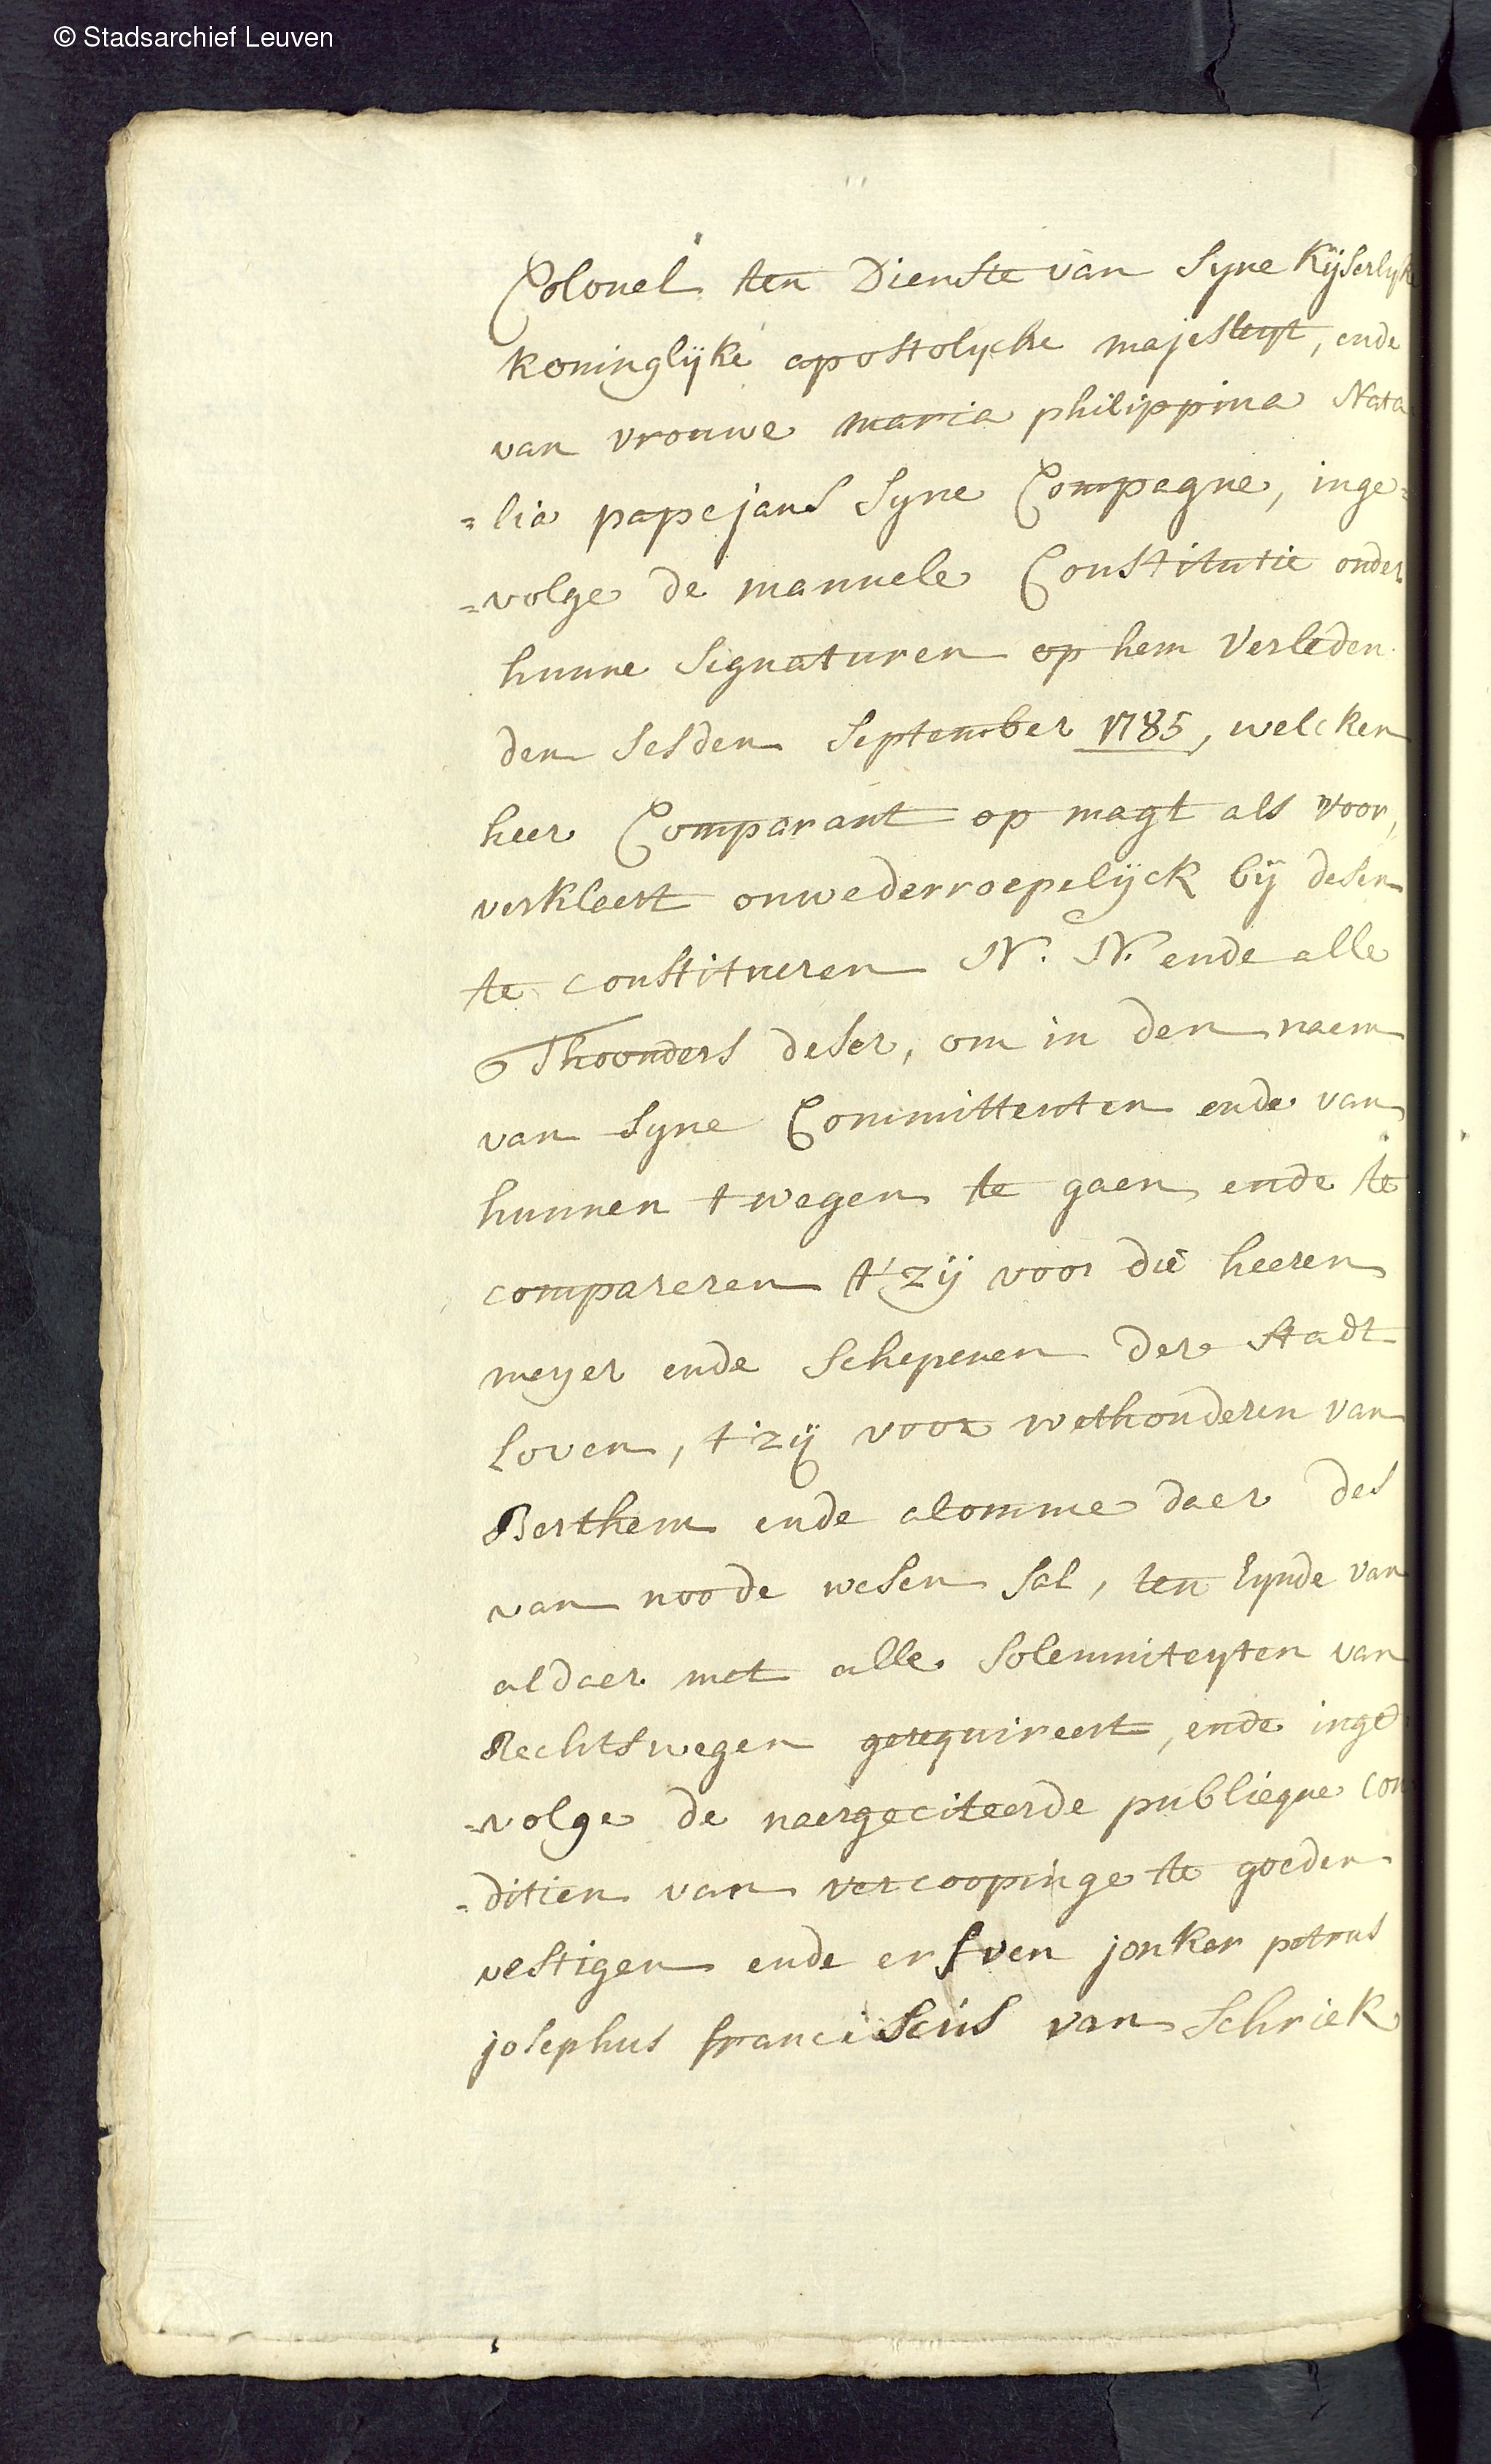 © Stadsarchief Leuven
Colonel ten Dienste van Syne Kijserlyke
koninglijke apostolycke majesteyt, ende
van vrouwe maria philippina Nata
=lia papejans Syne Compagne, inge=
=volge de manuele Constitutie onder
hunne Signaturen op hem Verleden
den Sesden September 1785, welcken
heer Comparant op magt als voor,
verkleert onwederroepelijck bij desen
te constitueren N. N. ende alle
Thoonders deser, om in den naem
van Syne Committenten ende van
hunnen t wegen te gaen ende te
compareren t'zij voor die heeren
meyer ende Schepenen der Stadt
Loven, t'zij voor wethouderen van
Berthem ende alomme daer des
van noode wesen sal, ten Eynde van
aldaer met alle Solemniteyten van
Rechtswegen gerequireert, ende inge
=volge de naergeciteerde publieque con
=ditien van vercoopinge te goeden
vestigen ende erfven jonker petrus
josephus franciscus van Schriek